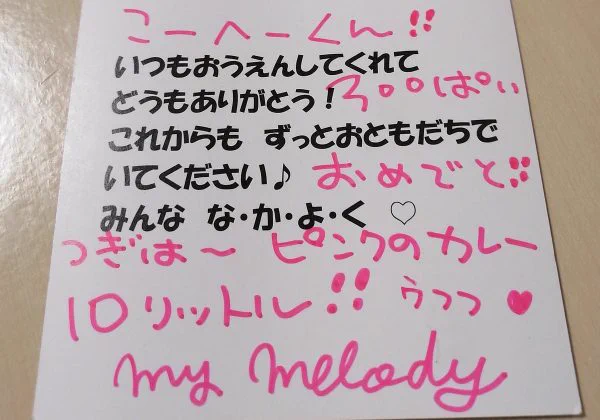 こーへーくん!!
いつもおうえんしてくれて
どうもありがとう! 300ぱい
これからも ずっとおともだちで
いてください♪ おめでと!!
みんな な・か・よ・く ♡
つぎは〜 ピンクのカレー
10リットル!! ウフフ ♥
my melody